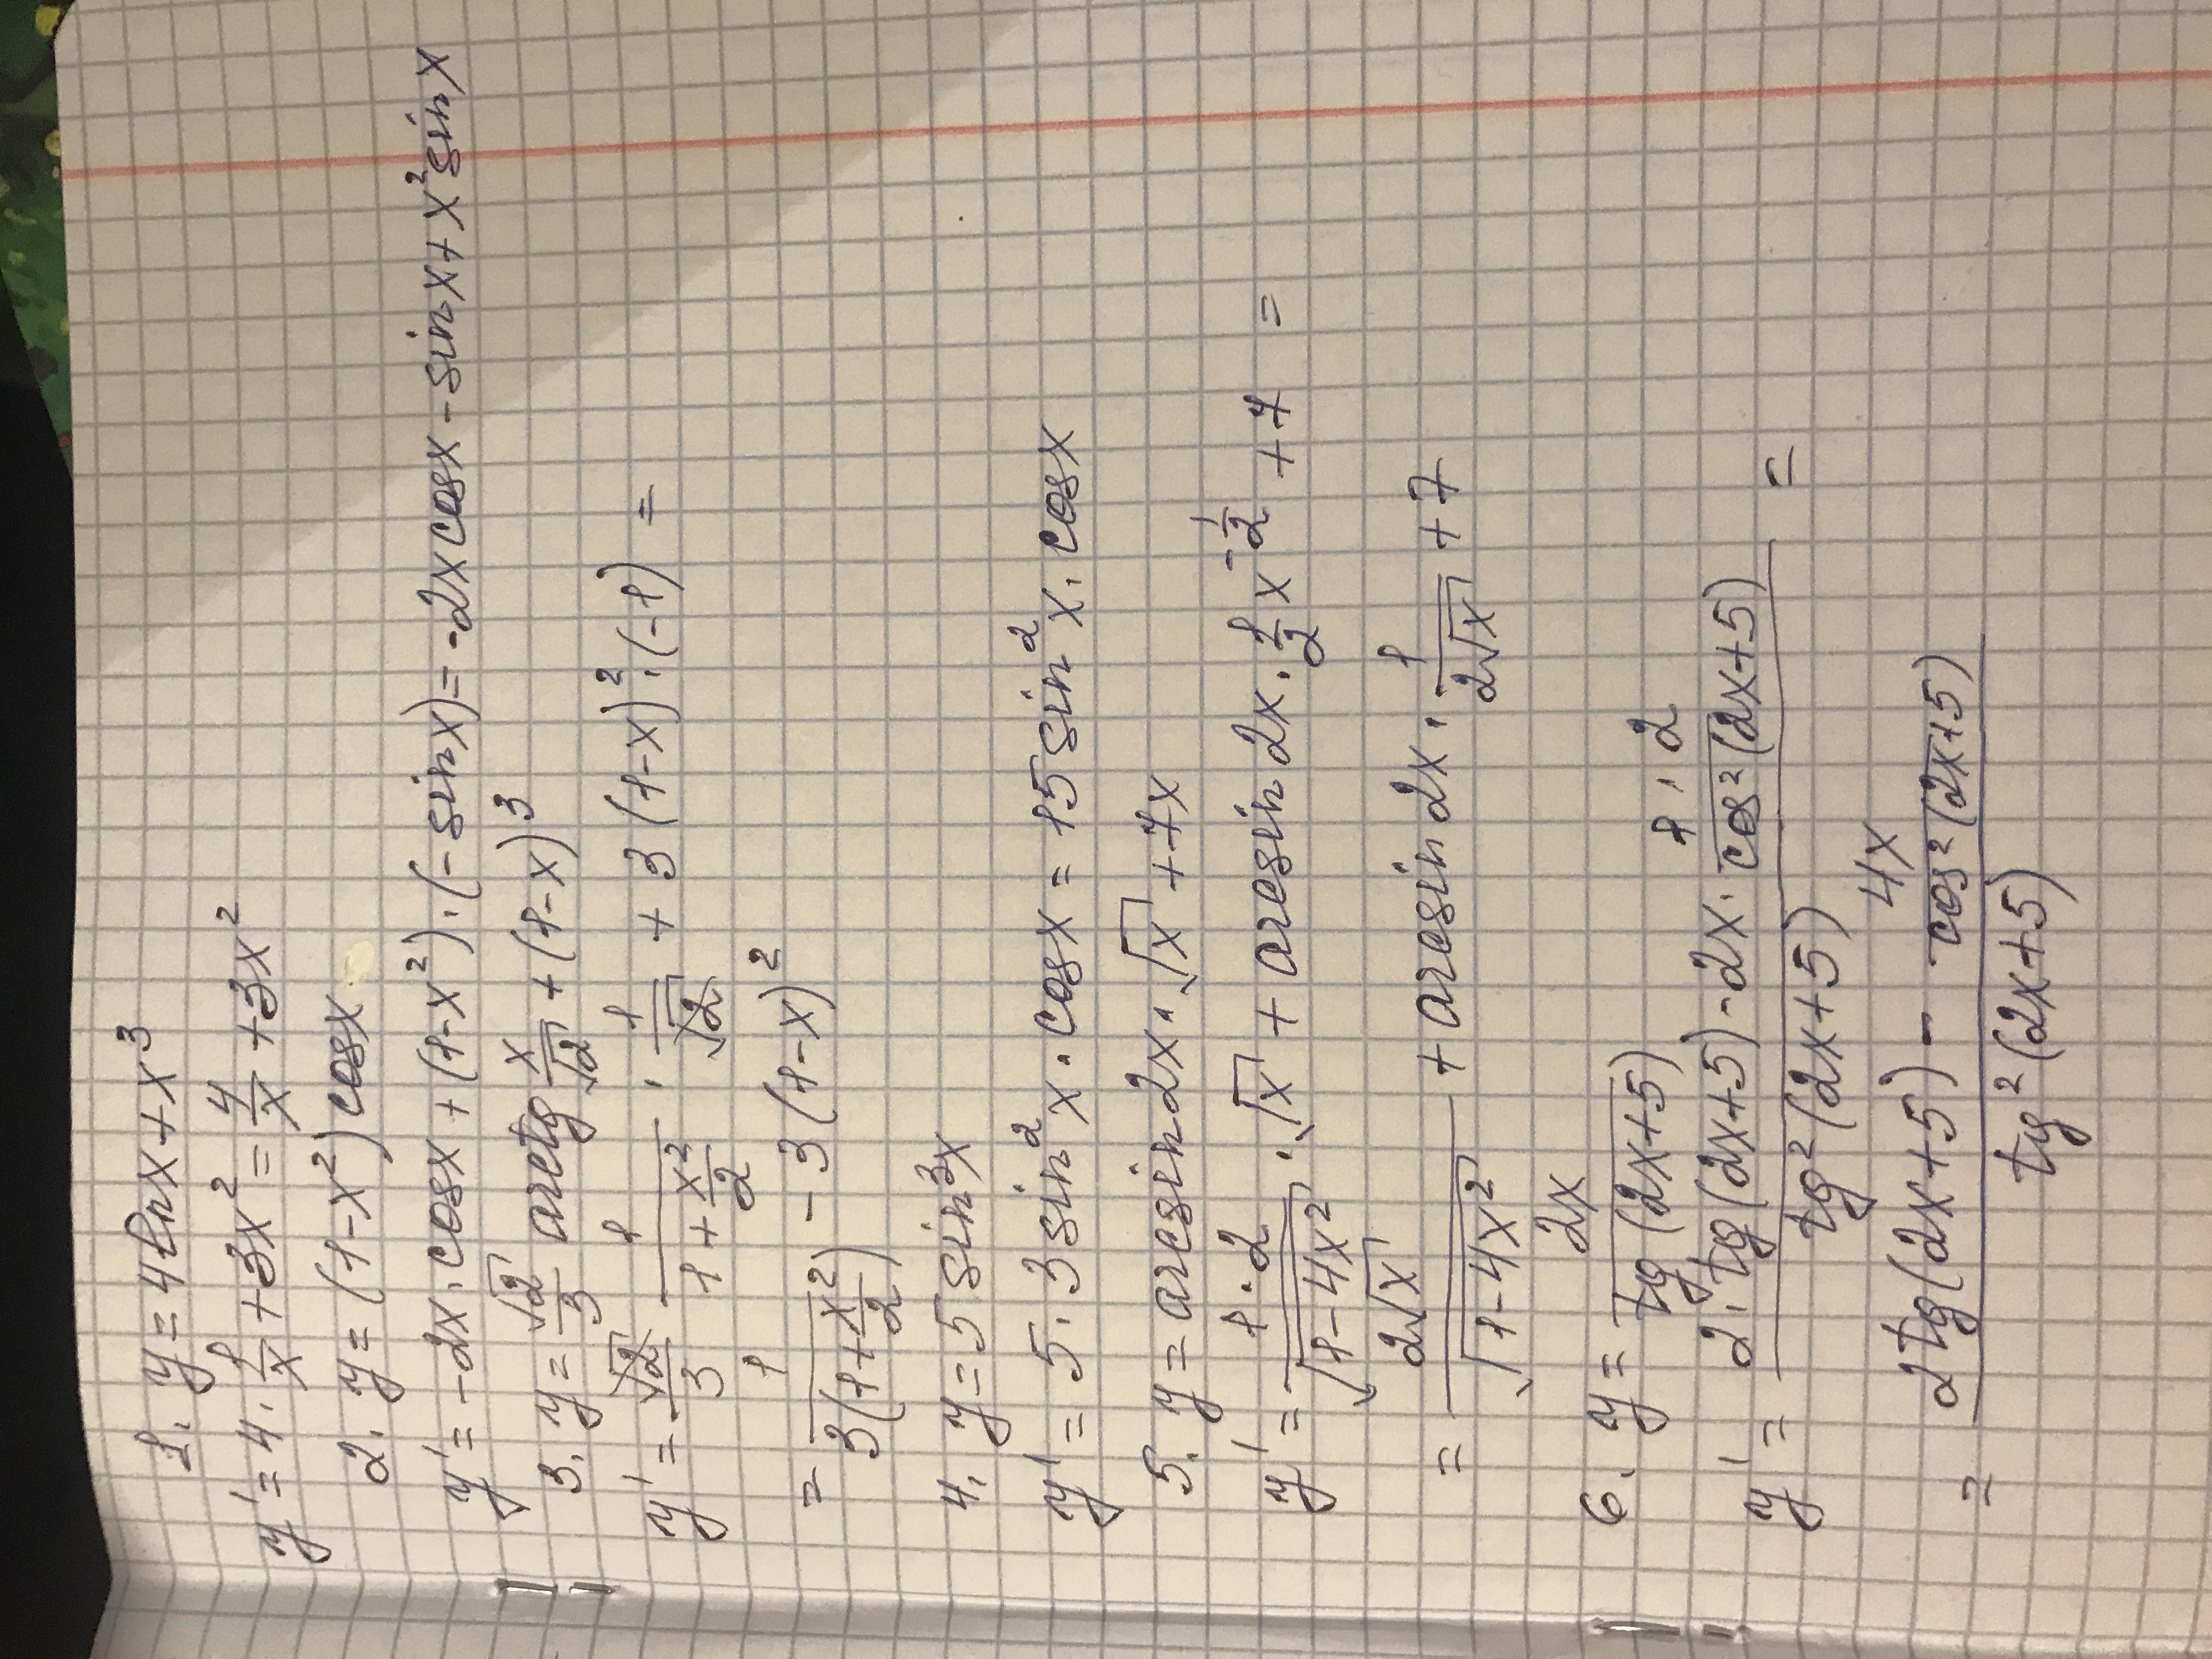 1. y = 4 ln x + x³
y' = 4 · 1/x + 3x² = 4/x + 3x²
2. y = (1-x²) cos x
y' = -2x · cos x + (1-x²) · (-sin x) = -2x cos x - sin x + x² sin x
3. y = √2/3 arctg x/√2 + (1-x)³
y' = √2/3 · 1/(1 + x²/2) · 1/√2 + 3(1-x)² · (-1) =
= 1/(3(1 + x²/2)) - 3(1-x)²
4. y = 5 sin³x
y' = 5 · 3 sin²x · cos x = 15 sin²x · cos x
5. y = arcsin 2x · √x + 7x
y' = 1·2/√(1-4x²) · √x + arcsin 2x · 1/2 x^(-1/2) + 7 =
= 2√x/√(1-4x²) + arcsin 2x · 1/(2√x) + 7
6. y = 2x/tg(2x+5)
y' = (2 · tg(2x+5) - 2x · 1·2/cos²(2x+5))/tg²(2x+5) =
= (2tg(2x+5) - 4x/cos²(2x+5))/tg²(2x+5)